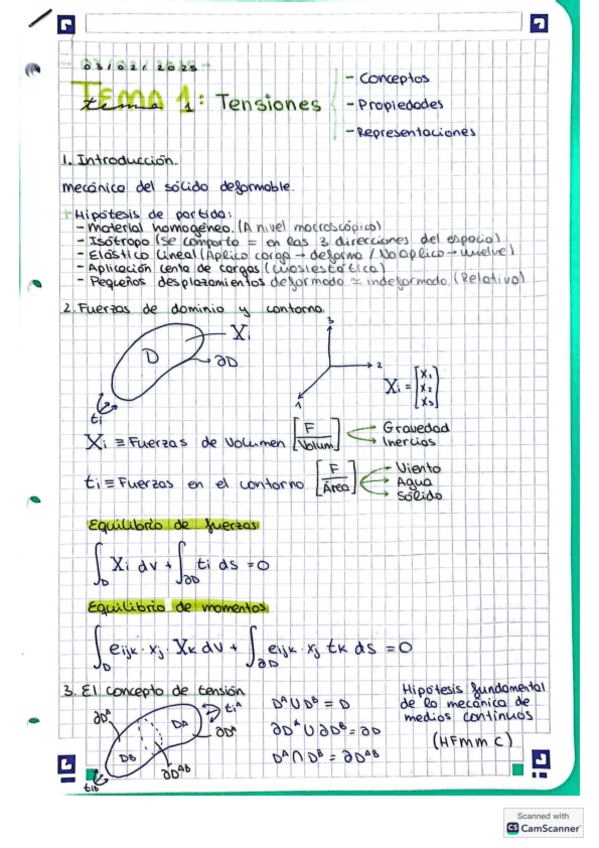 03/02/2025
TEMA 1: Tensiones
- Conceptos
- Propiedades
- Representaciones
1. Introducción.
mecánica del sólido deformable.
Hipótesis de partida:
- Material homogéneo. (A nivel macroscópico)
- Isótropo (Se comporta = en las 3 direcciones del espacio)
- Elástico Lineal (Aplico carga → deforma / No aplico → vuelve)
- Aplicación lenta de cargas (cuasiestática)
- Pequeños desplazamientos deformada ≃ indeformada. (Relativo)
2. Fuerzas de dominio y contorno.
D
Xi
∂D
ti
3
2
1
Xi = [X1 X2 X3]
Xi ≡ Fuerzas de Volumen [F/Volum]
Gravedad
Inercias
ti ≡ Fuerzas en el contorno [F/Área]
Viento
Agua
Sólido
Equilibrio de fuerzas
∫D Xi dv + ∫∂D ti ds = 0
Equilibrio de momentos
∫D eijk · xj · Xk dv + ∫∂D eijk · xj tk ds = 0
3. El concepto de tensión
∂Dᴬ
DA
DB
tiᴬ
∂Dᴬ
∂Dᴬᴮ
tiᵇ
Dᴬ ∪ Dᴮ = D
∂Dᴬ ∪ ∂Dᴮ = ∂D
Dᴬ ∩ Dᴮ = ∂Dᴬᴮ
Hipótesis fundamental
de la mecánica de
medios continuos
(HFmmC)
Scanned with
CS CamScanner